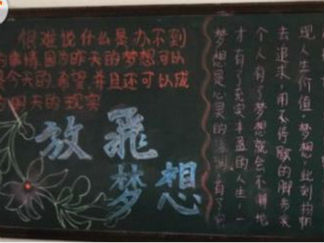 很难说什么是办不到
的事情,因为昨天的梦想可以
是今天的希望,并且还可以成
为明天的现实
放飛
梦想
现人生价值,梦想,此到抱
去追求,用不停歇的脚步来
个人有了梦想就会不断地
才有了充实丰盈的人生,一
梦想是心灵的